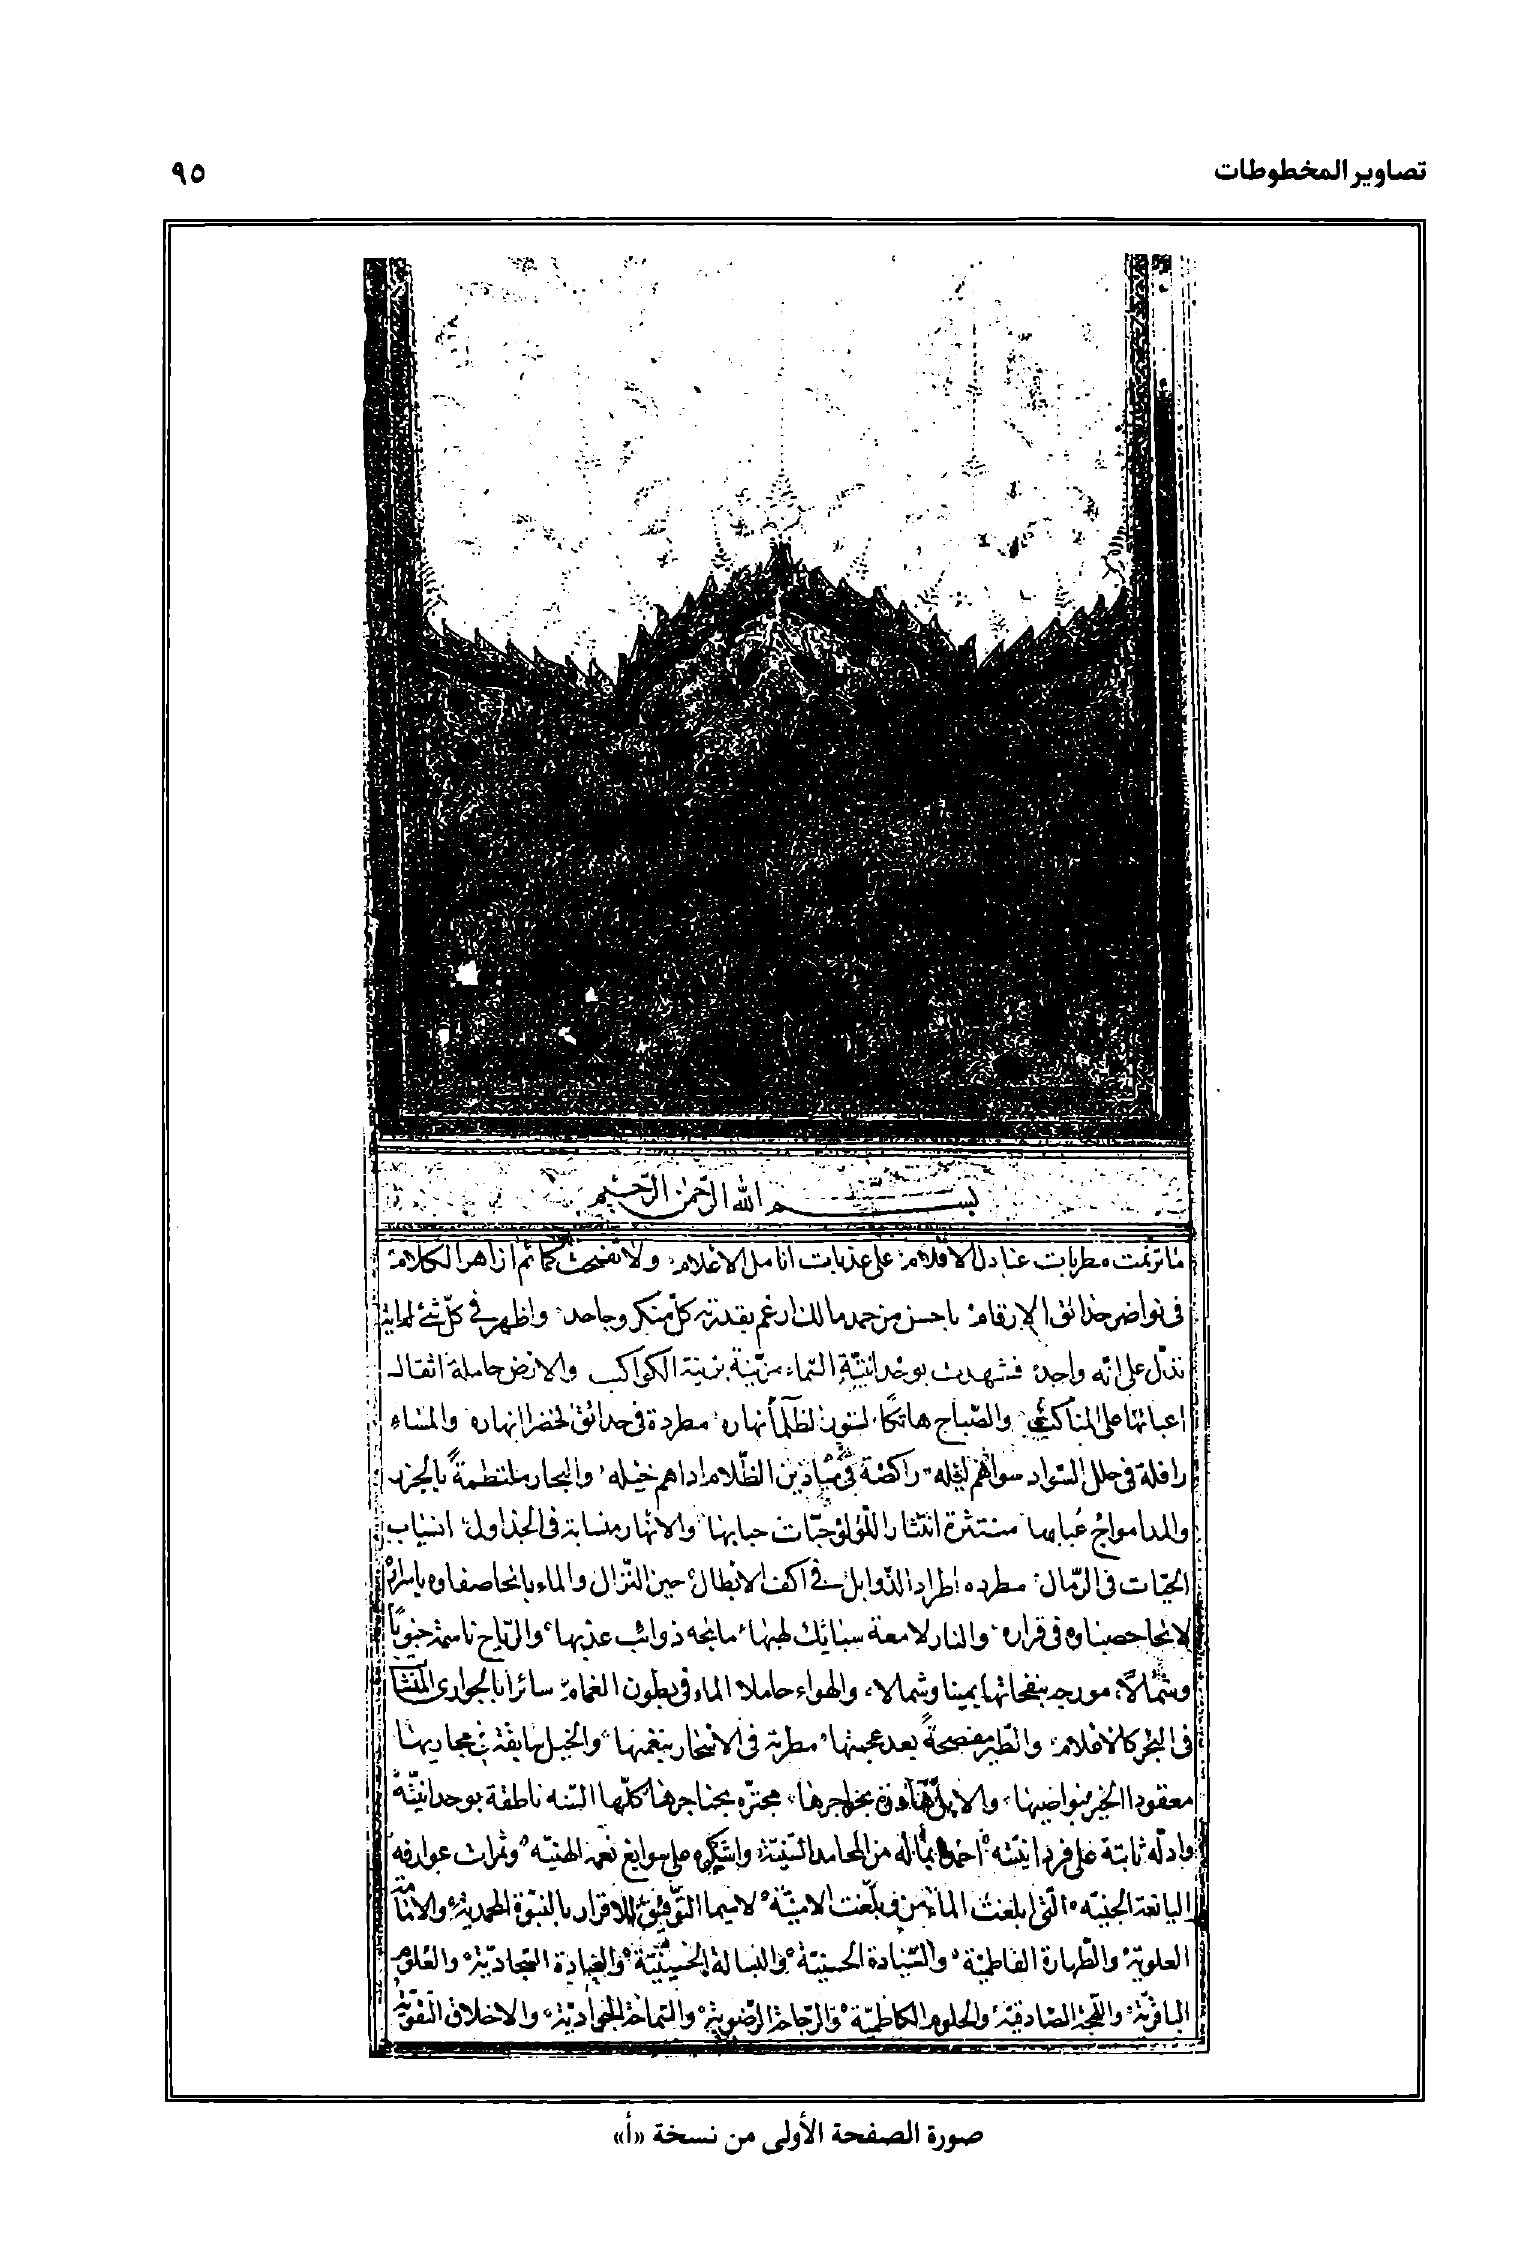 تصاوير المخطوطات
٩٥
بسم الله الرحمن الرحيم
ما ترنمت مطربات عنادل الاقلام على عذبات انامل الاعلام ولا تفتحت كمائم ازاهر الكلام
فى نواضر حدائق الارقام باحسن من حمد مالك ارغم بقدرته كل منكر وجاحد واظهر في كل شئ له اية
تدل على انه واحد فشهدت بوحدانيته السماء مزينة بزينة الكواكب والارض حاملة اثقال
اعبائها على المناكب والصباح هاتكا لستور لظلما نهاره مطردة فى حدائق لخضر انهاره والمساء
رافلة فى حلل السواد سواهم ليله راكضة في ميادين الظلام اداهم خيله والبحار ملتطمة بالجزر
والمد امواج عبابها منتثرة انتثار اللؤلؤ حبات حبابها والانهار منسابة فى الجداول انسياب
الحيات فى الرمال مطرده اطراد الذوابل في اكف الابطال حين النزال والماء بانحا صفاوه باسراره
لانحا حصباوه فى قراره والنار لامعة سبائك لهبها مائجه ذوائب عذبها والرياح ناسمة جنوبا
وشمالا مورجه بنفحاتها يمينا وشمالا والهواء حاملا الماء فى بطون الغمام سائرا بالجوارى المنشا
فى البحر كالاعلام والطير مفصحة بعد عجمتها مطربة فى الاسحار بنغمتها والخيل سابقة فى مجاريها
معقودا الخير بنواصيها والابل هادرة بحناجرها كلها السنه ناطقة بوحدانيته
وادله ثابتة على فردانيته احمده بماله من المحامد السنية واشكره على سوابغ نعمه الهنيه وثمرات عوارفه
اليانعة الجنيه التى ابلغت الماء من فى بلغت الامنية لاسيما التوفيق للاقرار بالنبوة المحمدية والامامة
العلوية والطهارة الفاطمية والسيادة الحسنية والبسالة الحسينية والعبادة السجادية والعلوم
الباقرية واللهجة الصادقية والحلوم الكاظمية والرجاحة الرضوية والسماحة الجوادية والاخلاق النقوية
صورة الصفحة الأولى من نسخة «أ»